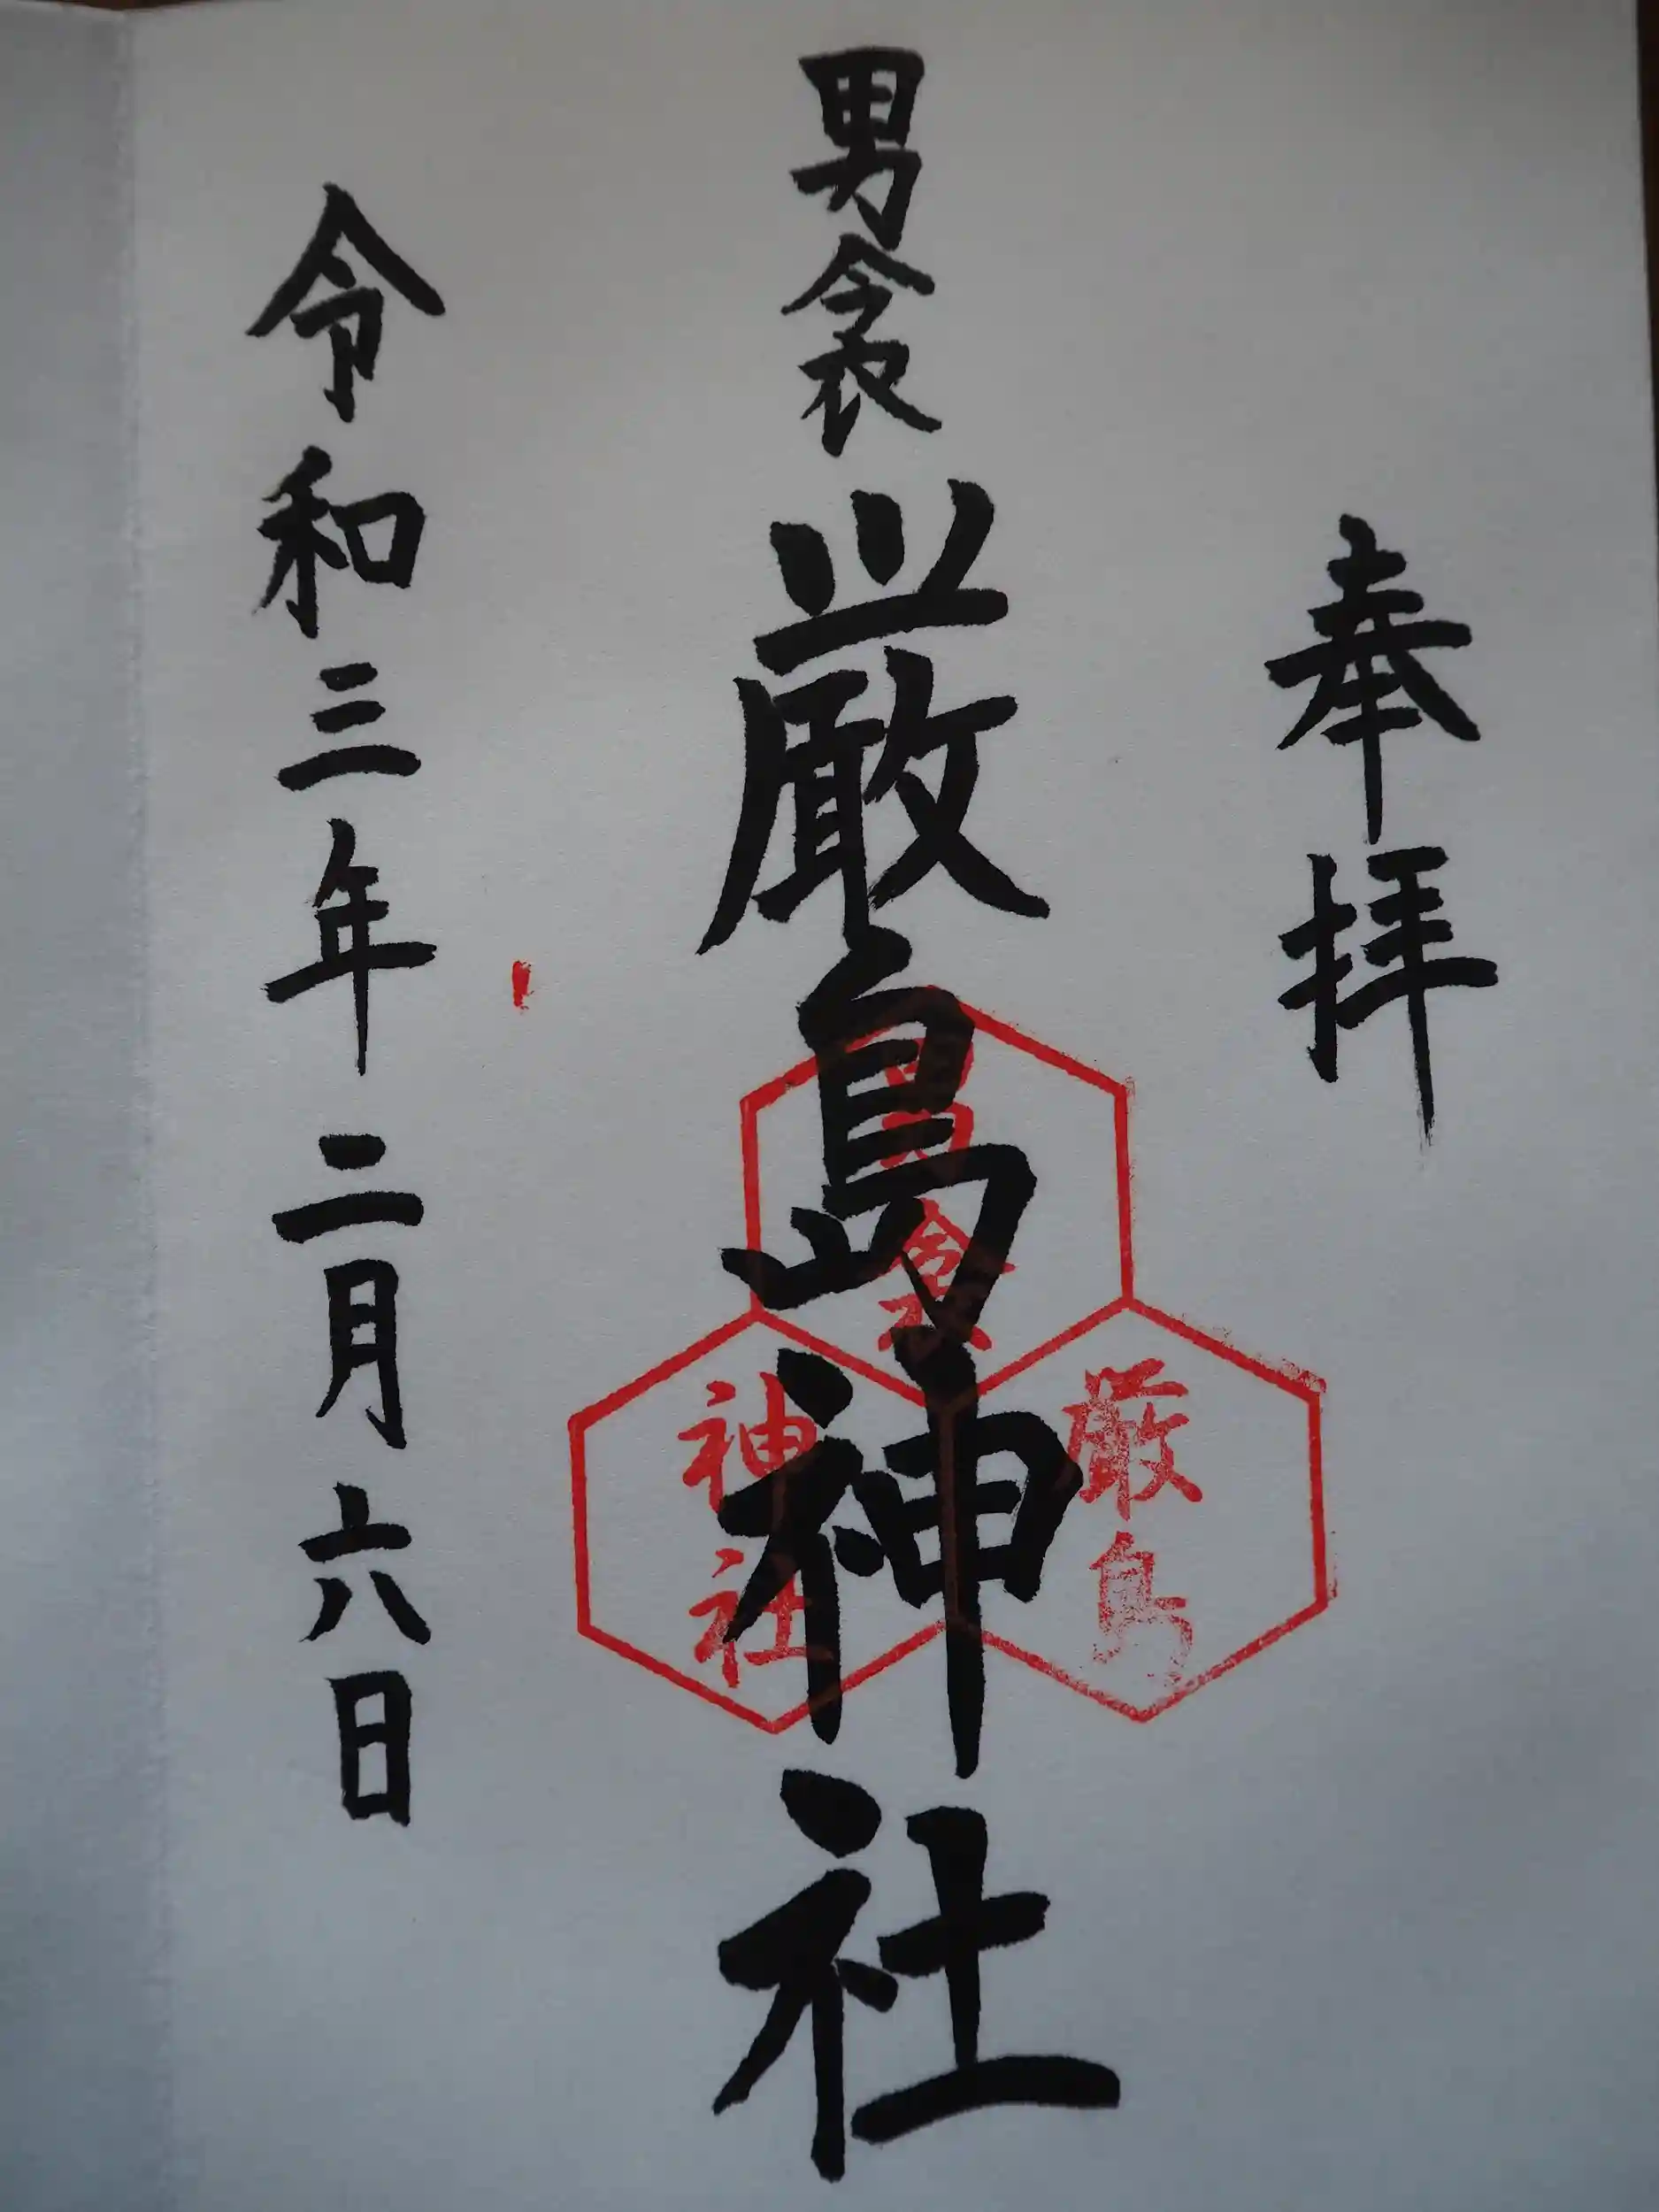 奉拝
男衾厳島神社
令和三年二月六日
男衾
厳島
神社